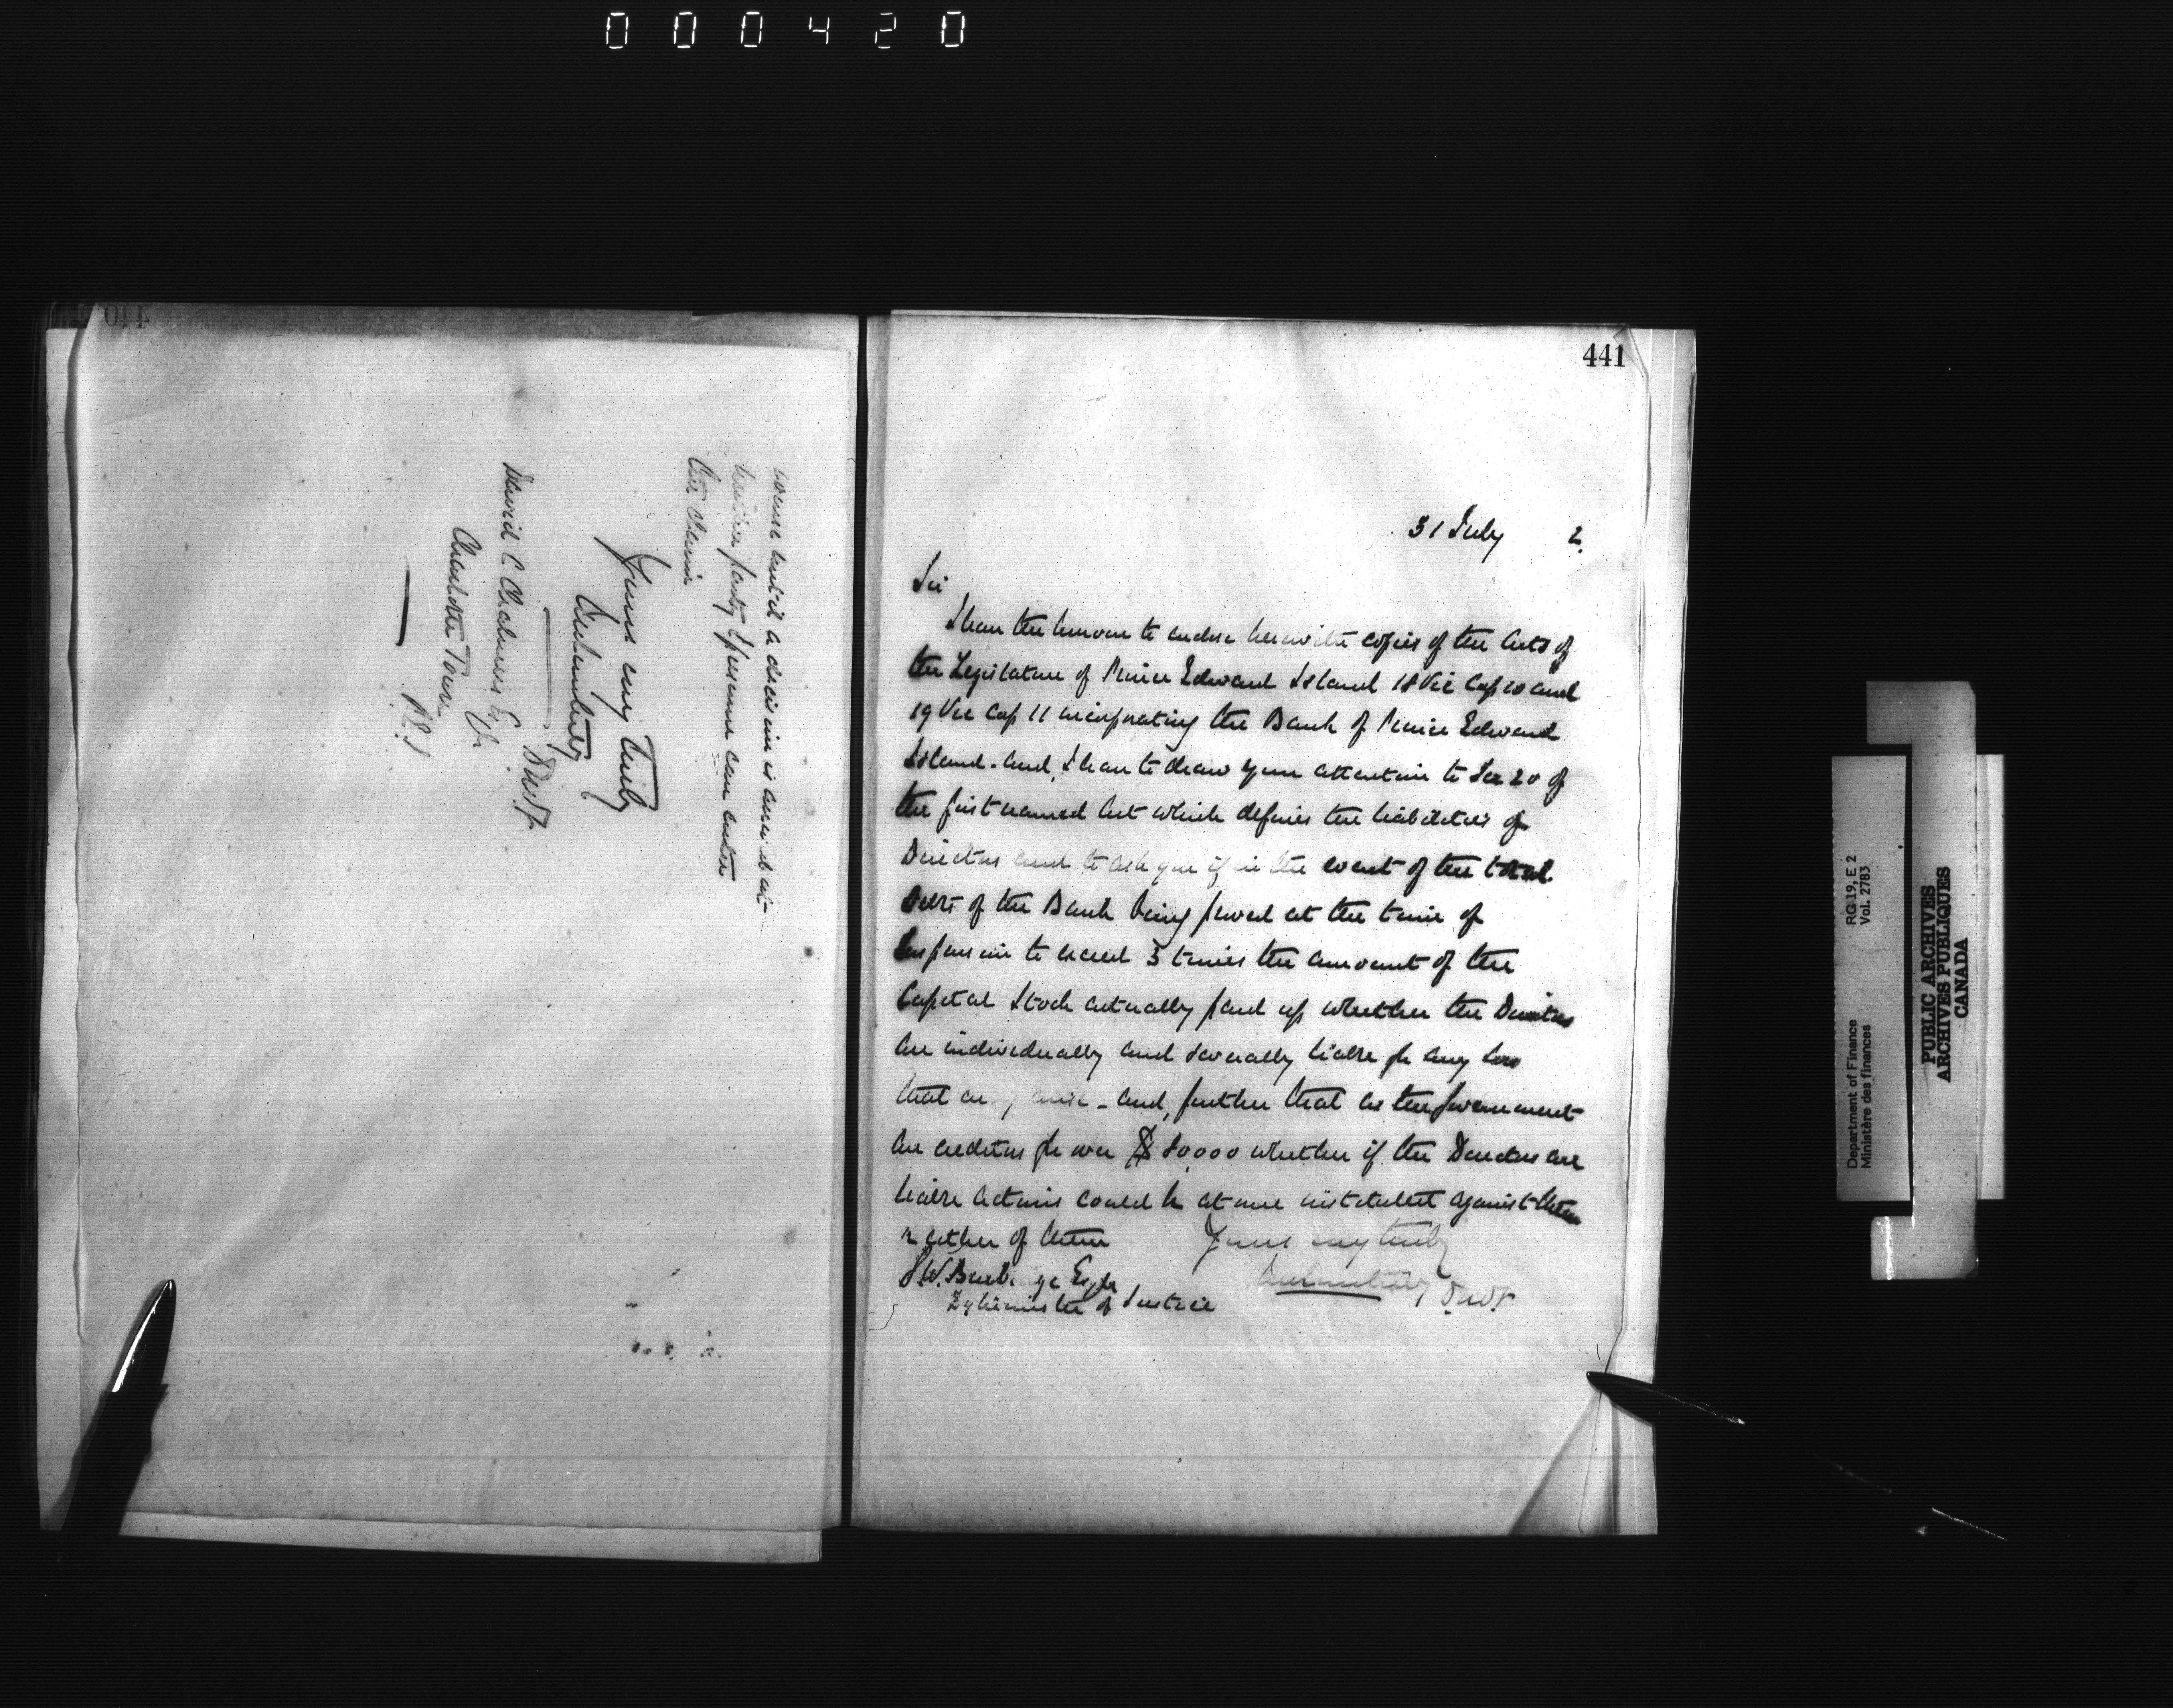 000420
would until a decision is arrived at
neither party I presume can enter
the claim
Yours very truly
J M Courtney
D M F
David C Chalmers Esq
Charlotte Town
P.E.I
441
31 July 2
Sir
I have the honour to enclose herewith copies of the Acts of
the Legislature of Prince Edward Island 18 Vic Cap 10 and
19 Vic Cap 11 incorporating the Bank of Prince Edward
Island. and, I have to draw your attention to Sec 20 of
the first named Act which defines the liabilities of
Directors and to ask you if in the event of the total
Debts of the Bank being proved at the time of
Suspension to exceed 3 times the amount of the
Capital Stock actually paid up whether the Directors
are individually and severally liable for any loss
that may arise - and, further that as the Government
are creditors for over $80,000 whether if the Directors are
liable actions could be at once instituted against them
or either of them
Yours very truly
J M Courtney
D.M.F.
G.W. Burbidge Esqre
Dy Minister of Justice
Department of Finance
Ministère des finances
RG 19, E 2
Vol. 2783
PUBLIC ARCHIVES
ARCHIVES PUBLIQUES
CANADA